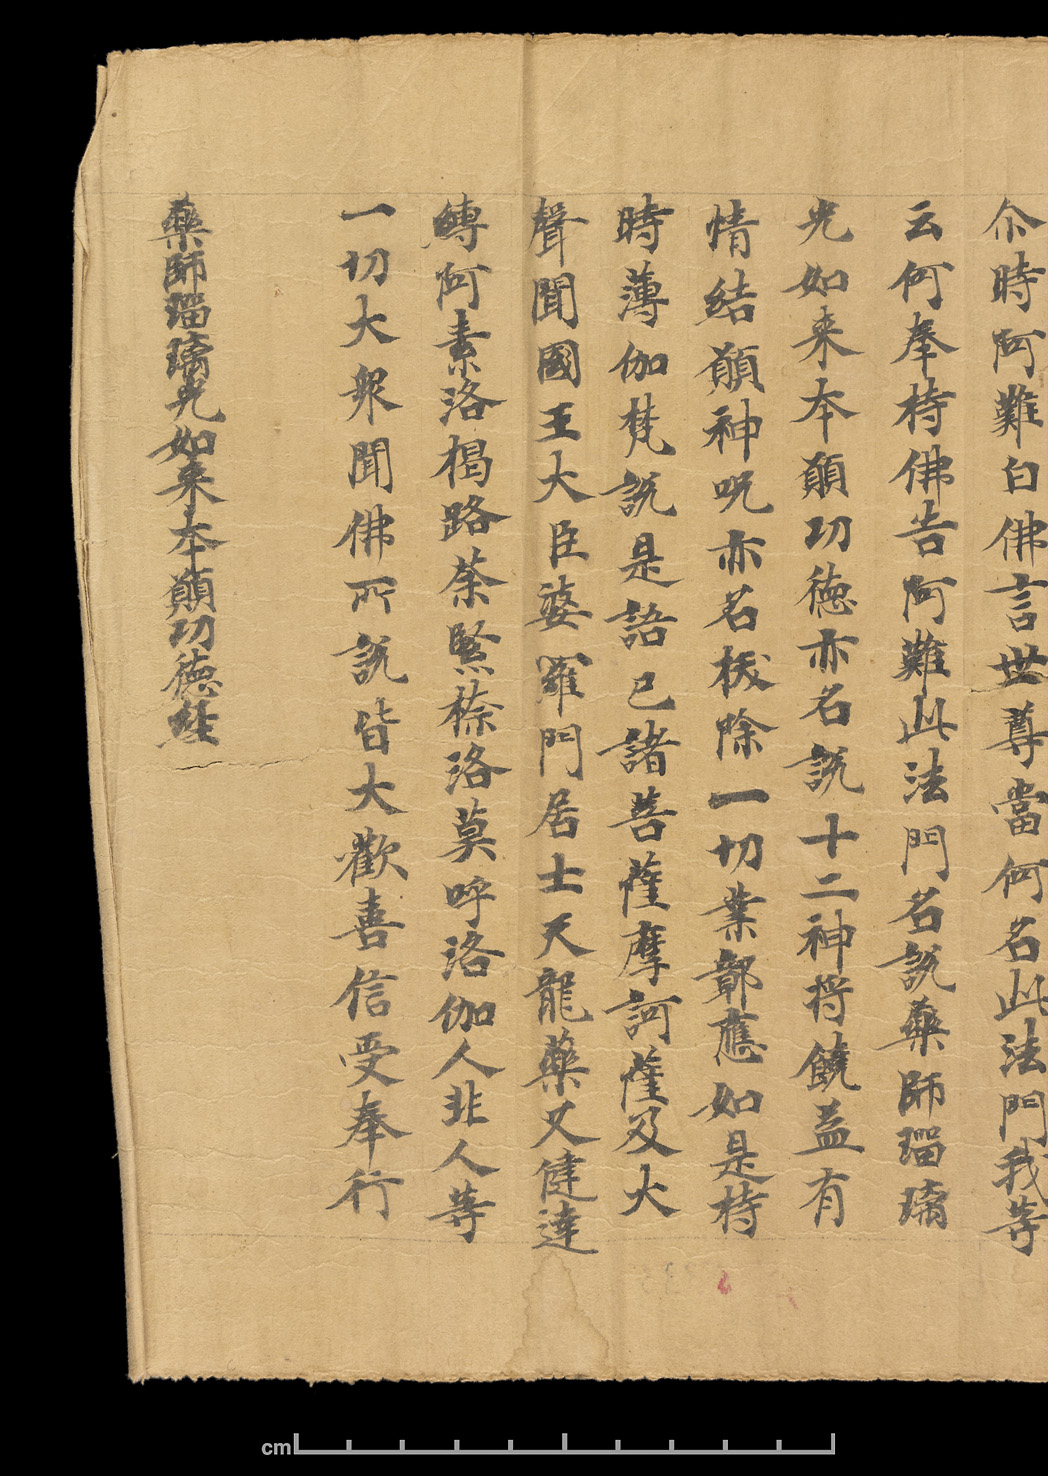 尒時阿難白佛言世尊當何名此法門我等
云何奉持佛告阿難此法門名說藥師瑠璃
光如来本願功德亦名說十二神将饒益有
情結願神呪亦名拔除一切業鄣應如是持
時薄伽梵說是語已諸菩薩摩訶薩及大
聲聞國王大臣婆羅門居士天龍藥叉健達
縛阿素洛揭路荼緊捺洛莫呼洛伽人非人等
一切大眾聞佛所說皆大歡喜信受奉行
藥師瑠璃光如来本願功德經